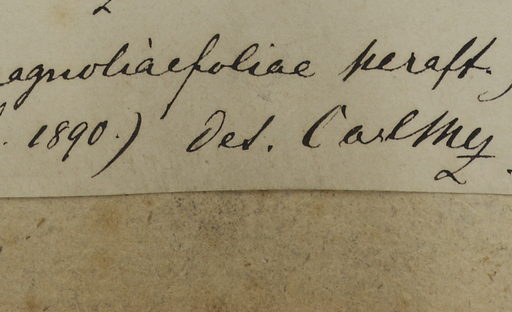 agnoliaefoliae heraft.)
. 1890.) Det. Carl Mey